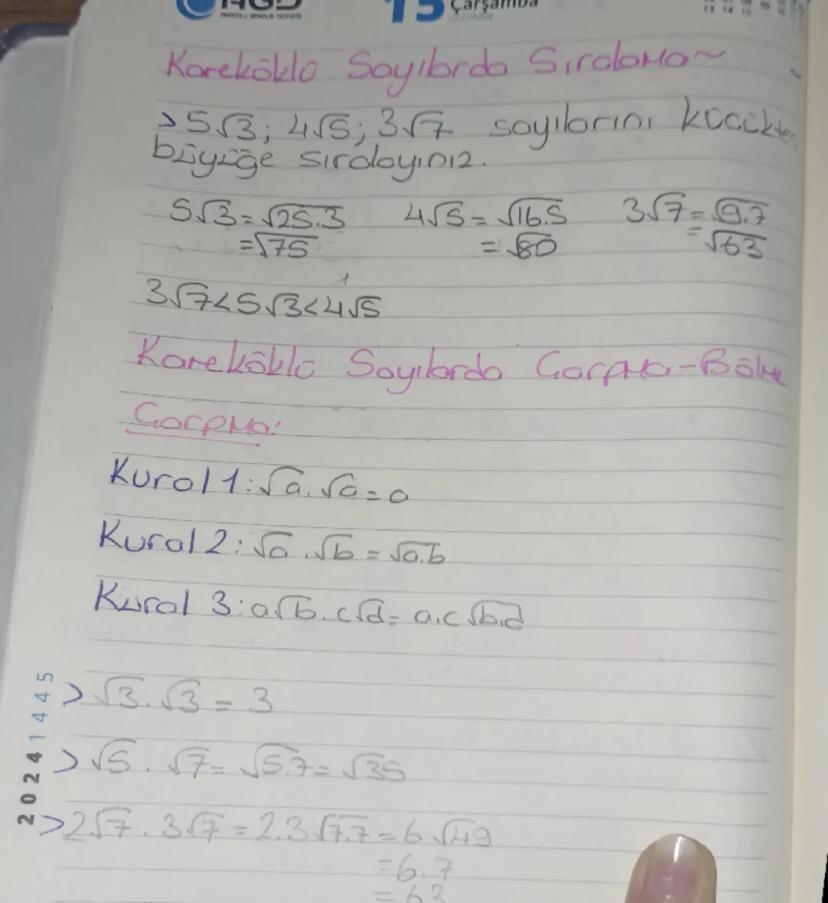 AGD
15 Çarşamba
13 14 15
Kareköklü Sayılarda Sıralama~
> 5√3; 4√5; 3√7 sayılarını küçükten
büyüğe sıralayınız.
5√3=√25.3 4√5=√16.5 3√7=√9.7
=√75 =√80 =√63
3√7<5√3<4√5
Kareköklü Sayılarda Çarpma-Bölme
Çarpma:
Kural 1:√a.√a=a
Kural 2:√a.√b=√a.b
Kural 3:a√b.c√d=a.c√b.d
>√3.√3=3
>√5.√7=√5.7=√35
>2√7.3√7=2.3√7.7=6√49
=6.7
=63
2024 1445